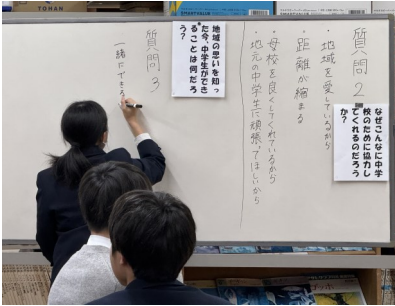 TOHAN
質問2
なぜこんなに中学
校のために協力し
てくれるのだろう
か?
・地域を愛しているから
・距離が縮まる
・母校を良くしてくれているから
・地元の中学生に頑張ってほしいから
地域の思いを知っ
た今、中学生ができ
ることは何だろ
う?
質問3
一緒にできる